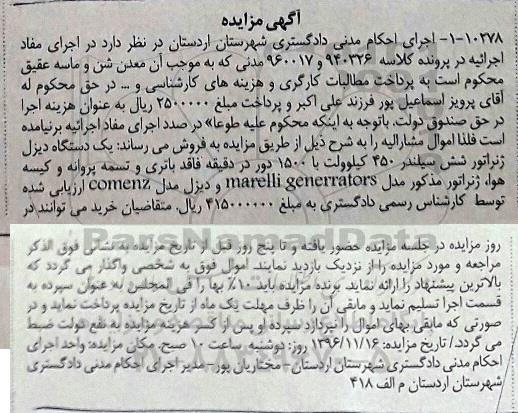 آگهی مزایده
۱-۱۰۲۷۸- اجرای احکام مدنی دادگستری شهرستان اردستان در نظر دارد در اجرای مفاد
اجرائیه در پرونده کلاسه ۹۴۰۳۲۶ و ۹۶۰۰۱۷ مدنی که به موجب آن معدن شن و ماسه عقیق
محکوم است به پرداخت مطالبات کارگری و هزینه های کارشناسی و ... در حق محکوم له
آقای پرویز اسماعیل پور فرزند علی اکبر و پرداخت مبلغ ۲۵۰۰۰۰۰ ریال به عنوان هزینه اجرا
در حق صندوق دولت. باتوجه به اینکه محکوم علیه طوعا» در صدد اجرای مفاد اجرائیه برنیامده
است فلذا اموال مشارالیه را به شرح ذیل از طریق مزایده به فروش می رساند: یک دستگاه دیزل
ژنراتور شش سیلندر ۴۵۰ کیلوولت با ۱۵۰۰ دور در دقیقه فاقد باتری و تسمه پروانه و کیسه
هوا، ژنراتور مذکور مدل marelli generrators و دیزل مدل comenz ارزیابی شده
توسط کارشناس رسمی دادگستری به مبلغ ۴۱۵۰۰۰۰۰۰ ریال. متقاضیان خرید می توانند در
روز مزایده در جلسه مزایده حضور یافته و تا پنج روز قبل از تاریخ مزایده به نشانی فوق الذکر
مراجعه و مورد مزایده را از نزدیک بازدید نمایند. اموال فوق به شخصی واگذار می گردد که
بالاترین پیشنهاد را ارائه نماید. برنده مزایده باید ۱۰٪ بها را فی المجلس به عنوان سپرده به
قسمت اجرا تسلیم نماید و مابقی آن را ظرف مهلت یک ماه از تاریخ مزایده پرداخت نماید و در
صورتی که مابقی بهای اموال را نپردازد سپرده او پس از کسر هزینه مزایده به نفع دولت ضبط
می گردد./ تاریخ مزایده: ۱۳۹۶/۱۱/۱۶ روز: دوشنبه، ساعت ۱۰ صبح. مکان مزایده: واحد اجرای
احکام مدنی دادگستری شهرستان اردستان - مختاریان پور - مدیر اجرای احکام مدنی دادگستری
شهرستان اردستان م الف ۴۱۸
ParsNamadData